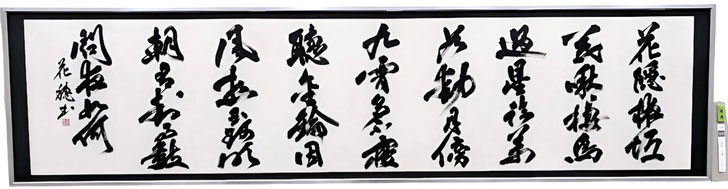 花隱掖垣
暮啾々棲鳥
過星臨萬
戶動月傍
九霄多不寢
聽金鑰因
風想玉珂明
朝有封事數
問夜如何